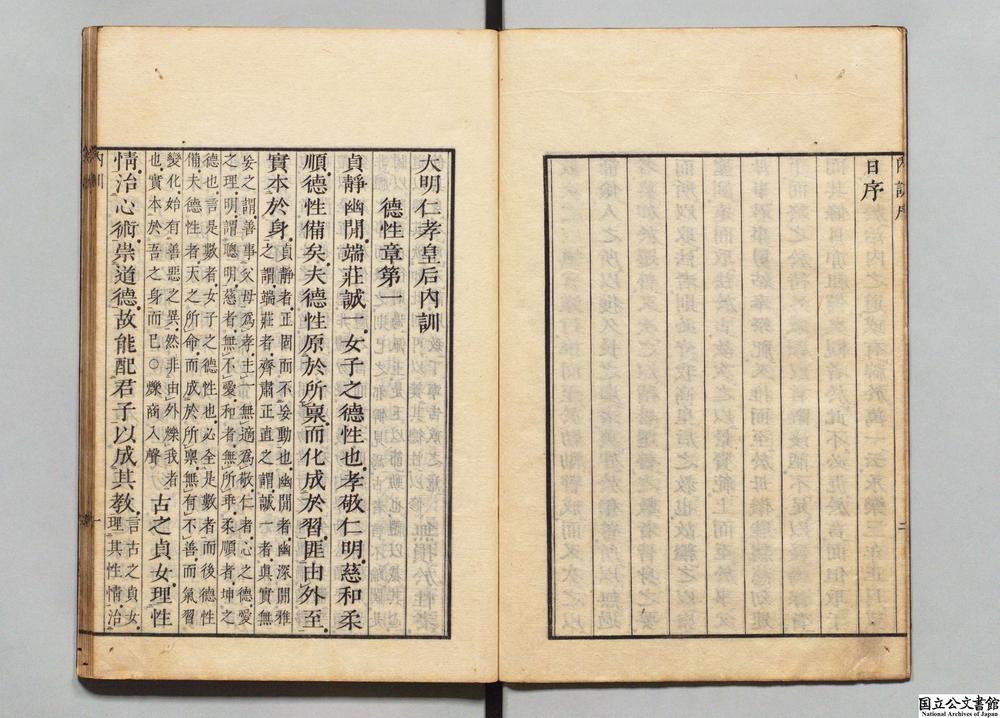 日序
大明仁孝皇后內訓
德性章第一
貞靜幽閒端莊誠一女子之德性也孝敬仁明慈和柔
順德性備矣夫德性原於所稟而化成於習匪由外至
實本於身貞靜者正固而不妄動也幽閒者幽深閒雅
之謂端莊者齊肅正直之謂誠一者真實無
妄之謂善事父母為孝主一無適為敬仁者心之德愛
之理明謂聰明慈者無不愛和者無所乖柔順者坤之
德也言是數者女子之德性也必全是數者而後德性
備夫德性者天之所命而成於所稟無有不善而氣習
變化始有善惡之異然非由外爍我者
也實本於吾之身而已○爍商入聲
古之貞女理性
情治心術崇道德故能配君子以成其教言古之貞女
理其性情治
內訓
一
二
国立公文書館
National Archives of Japan